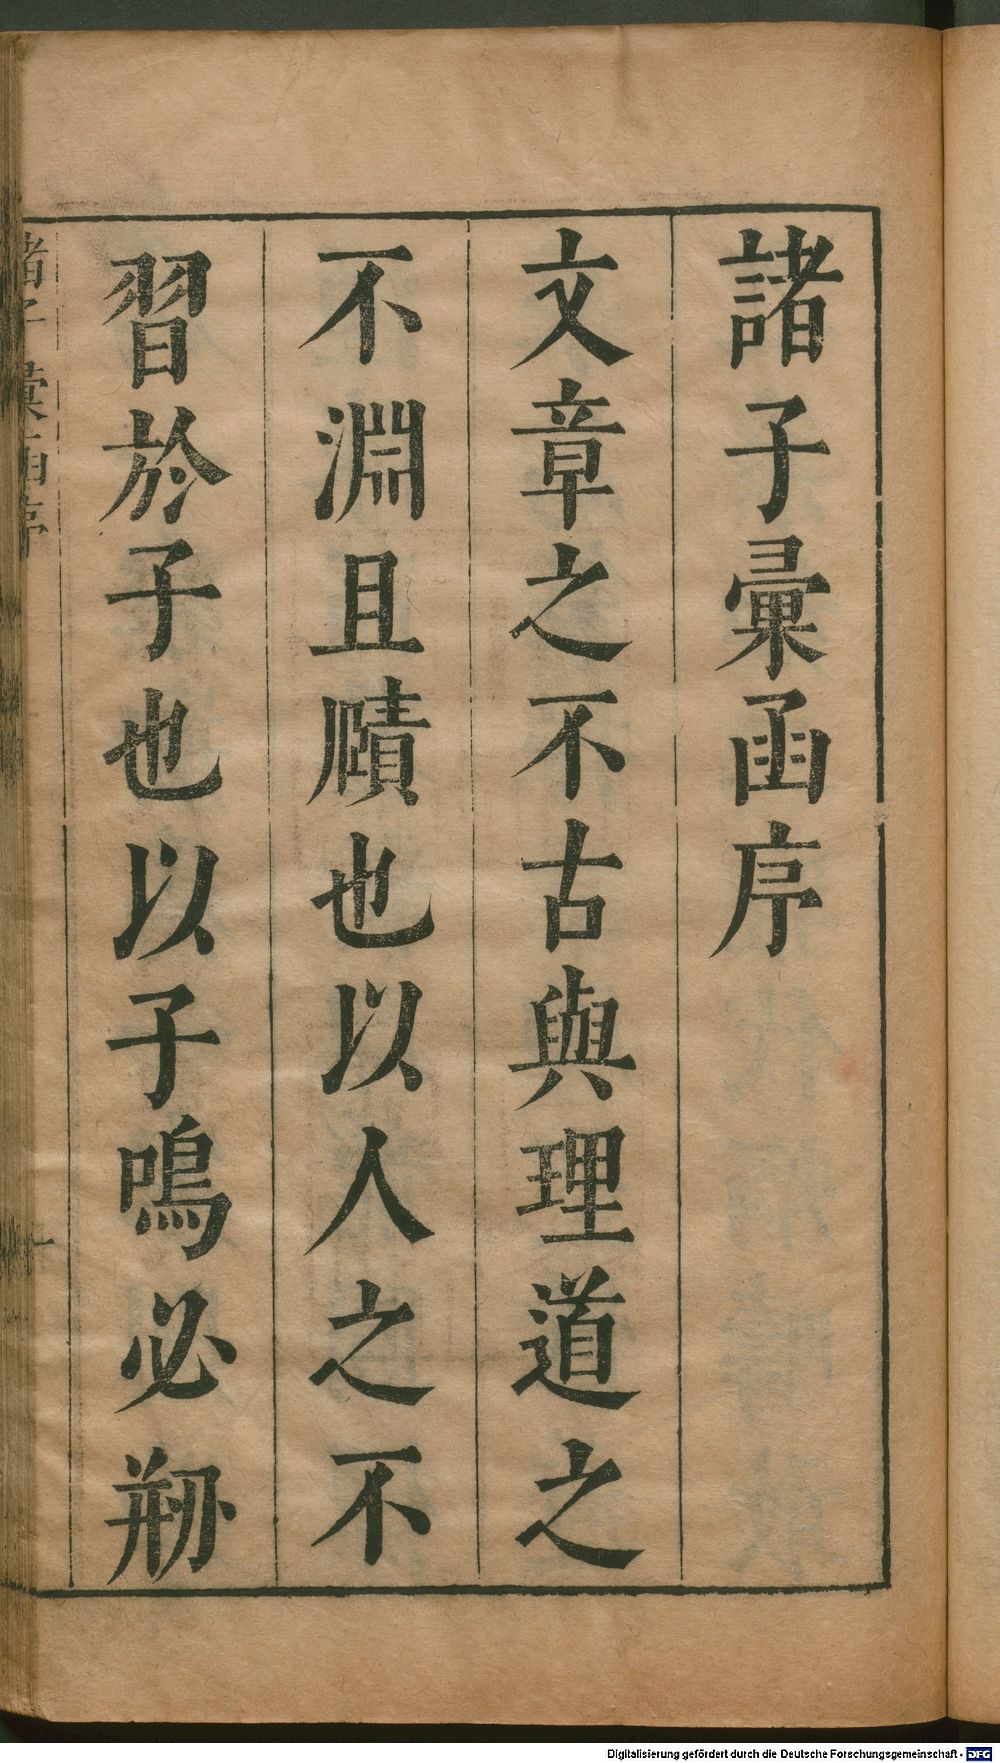 諸子彙函序
文章之不古與理道之
不淵且賾也以人之不
習於子也以子鳴必剏
諸子彙函序
一
Digitalisierung gefördert durch die Deutsche Forschungsgemeinschaft - DFG